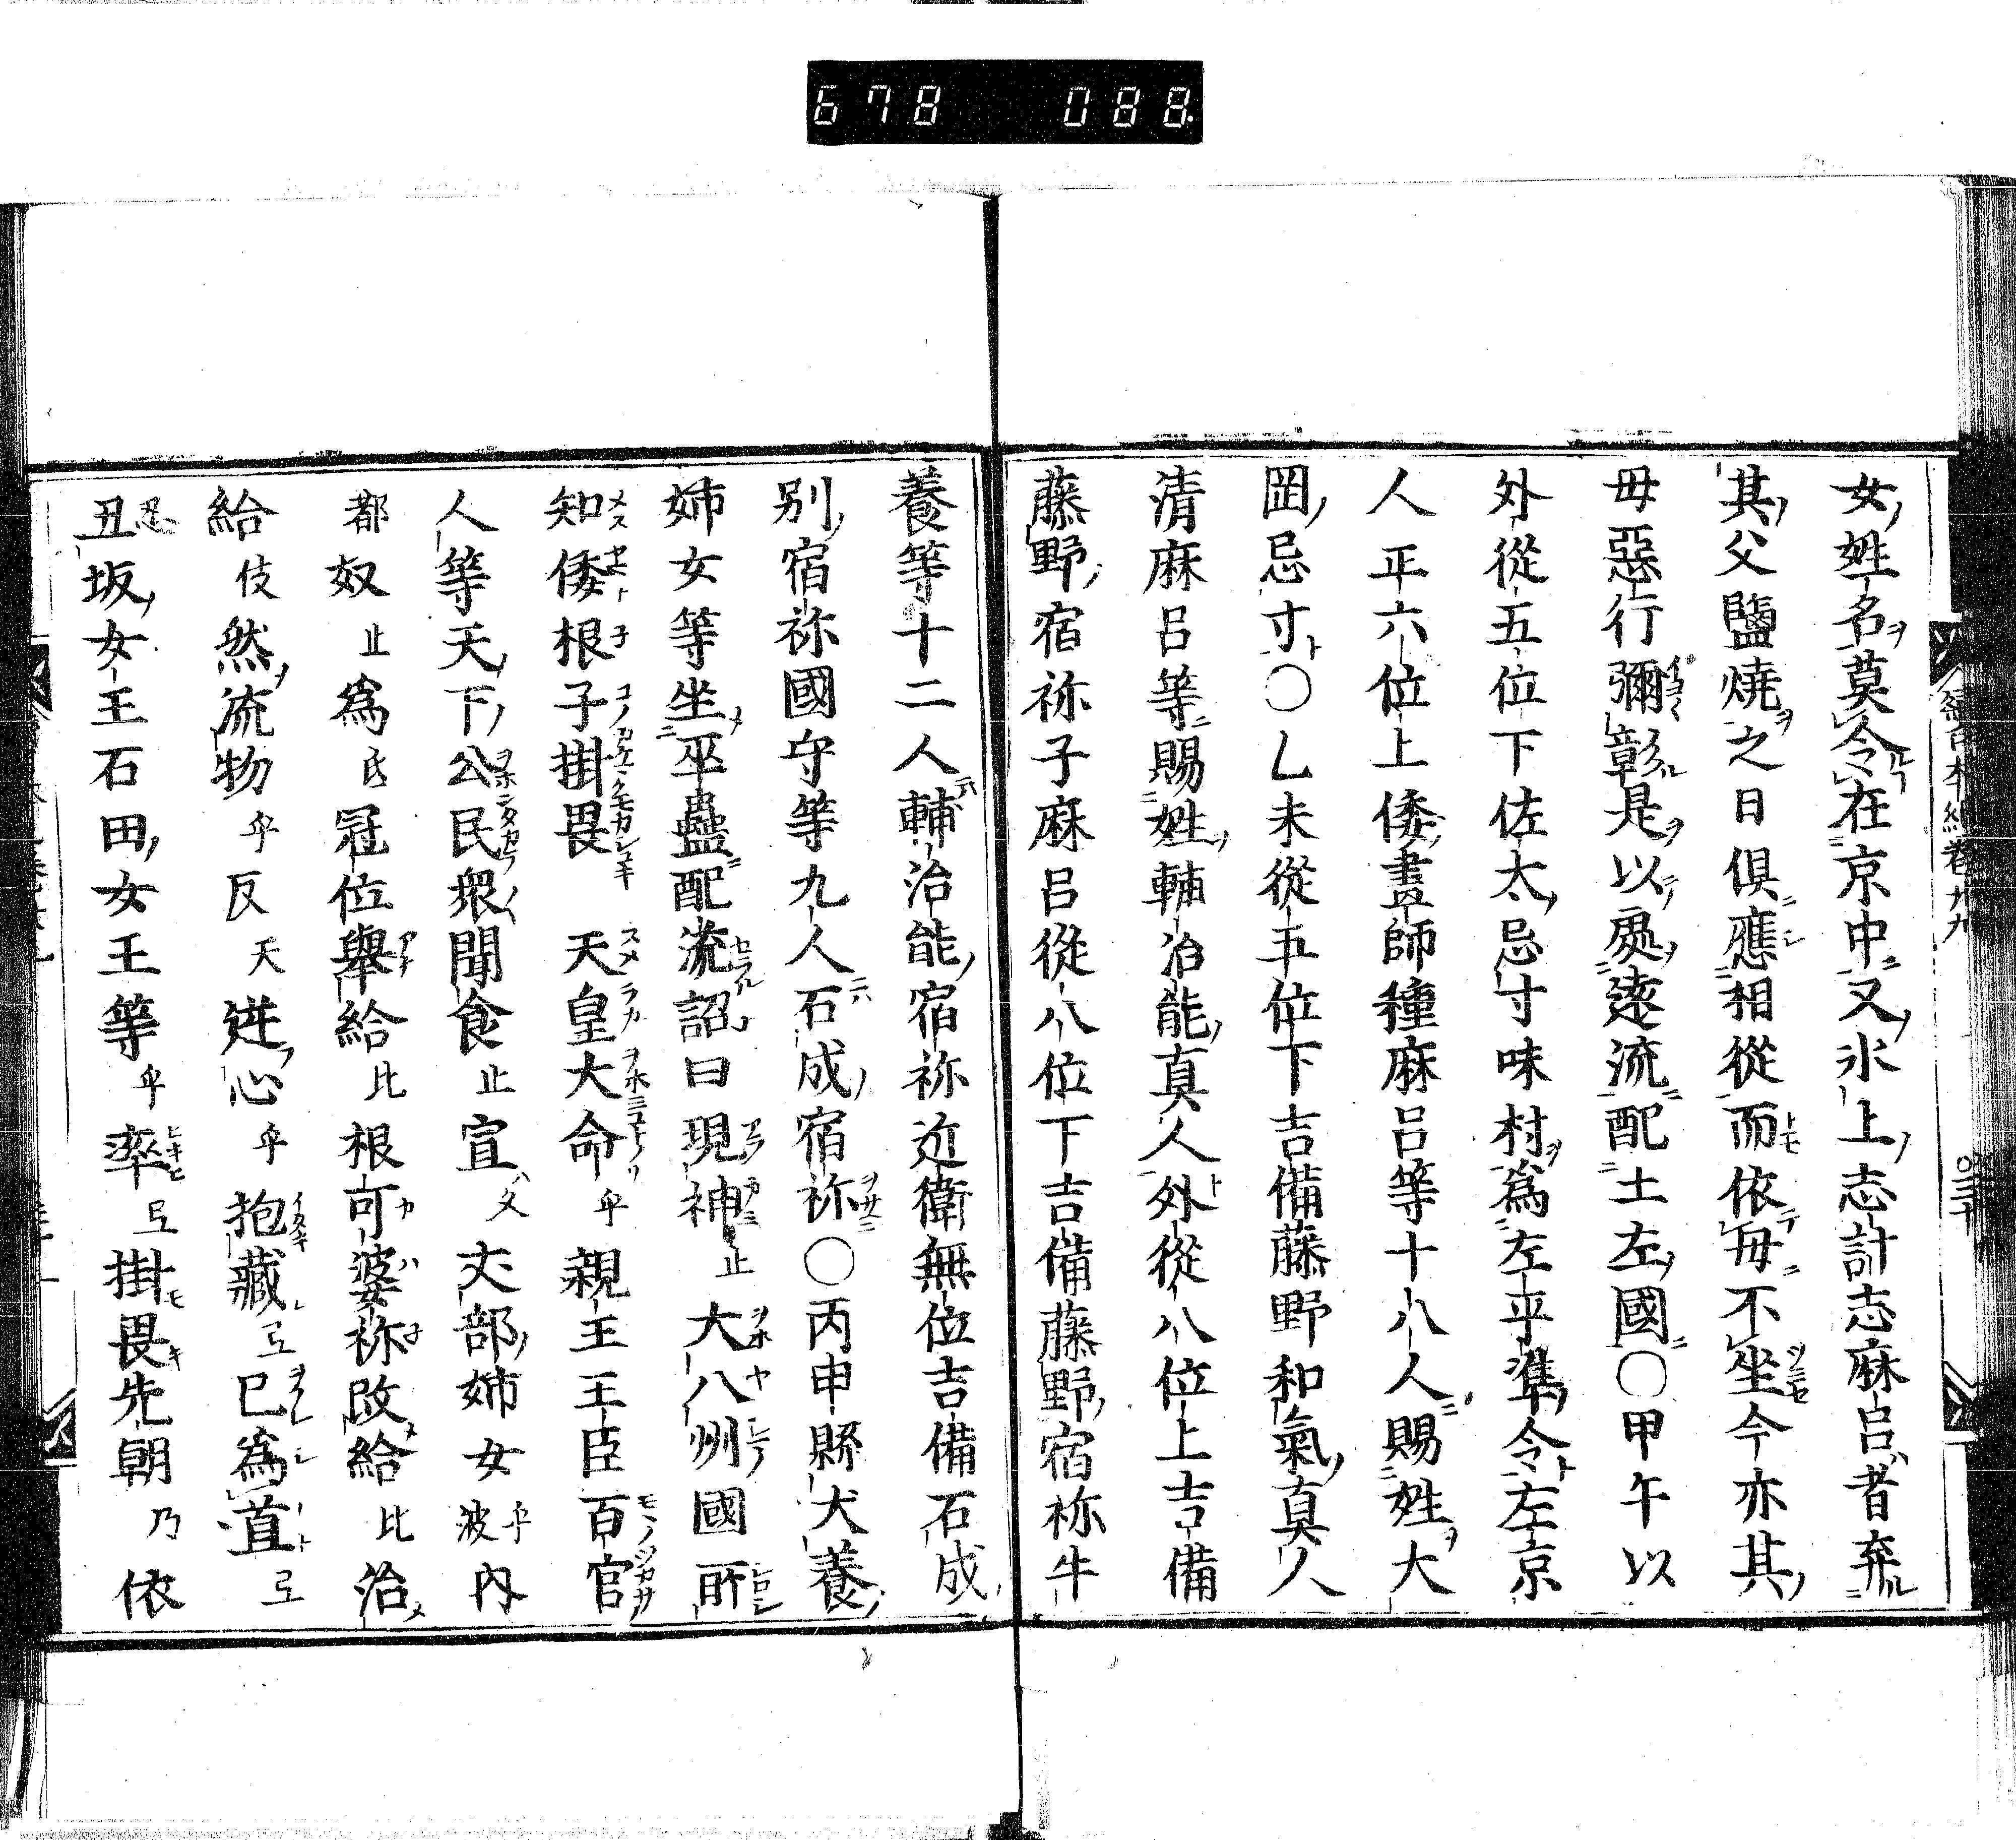 678 088
女姓名莫令在京中又氷上志計志麻呂者弃
其父鹽燒之日倶應相從而依毋不坐今亦其
毋惡行彌彰是以處遠流配土左國〇甲午以
外從五位下佐太忌寸味村爲左平準令左京
人正六位上倭畫師種麻呂等十八人賜姓大
岡忌寸〇乙未從五位下吉備藤野和氣真人
清麻呂等賜姓輔治能真人外從八位上吉備
藤野宿祢子麻呂從八位下吉備藤野宿祢牛
養等十二人輔治能宿祢近衛無位吉備石成
別宿祢國守等九人石成宿祢〇丙申縣犬養
姉女等坐巫蠱配流詔曰現神止大八州國所
知倭根子掛畏天皇大命乎親王王臣百官
人等天下公民衆聞食止宣丈部姉女波乎内
都奴止爲氐冠位擧給比根可婆祢改給比治
給伎然流物乎反天逆心乎抱藏弖已爲首弖
忍丑坂女王石田女王等乎率弖掛畏先朝乃依